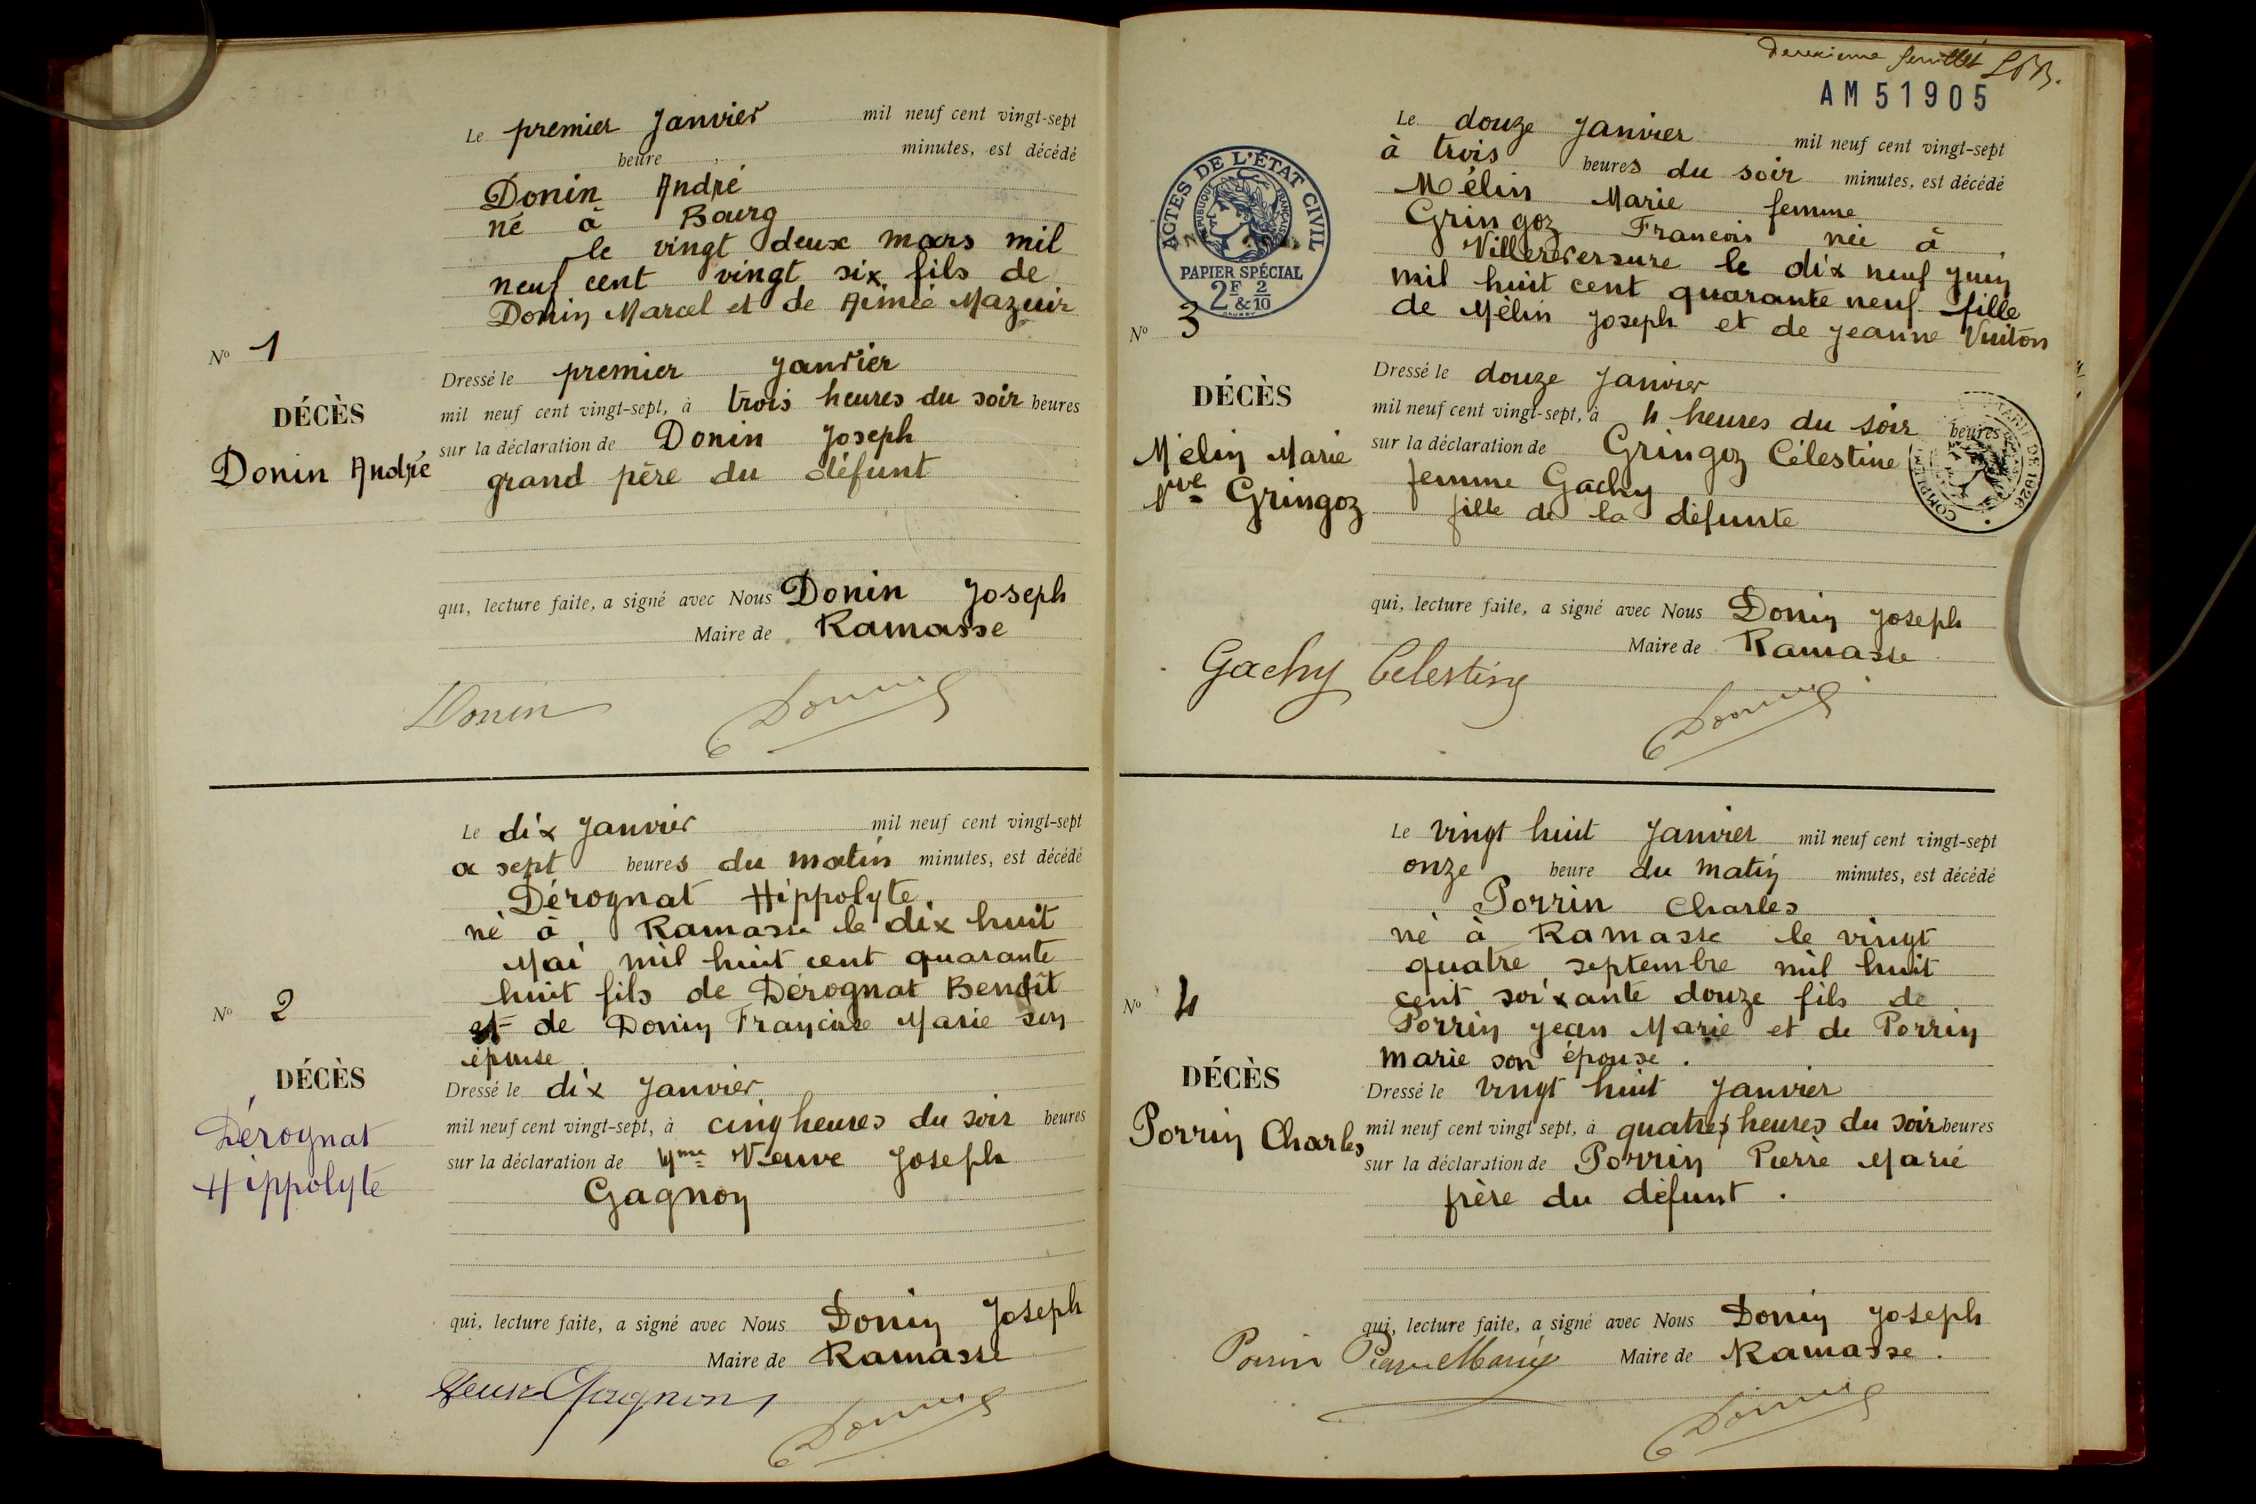 Le premier Janvier mil neuf cent vingt-sept
heure minutes, est décédé
Donin André
né à Bourg
le vingt deux mars mil
neuf cent vingt six fils de
Donin Marcel et de Aimée Mazuir
No 1
DÉCÈS
Donin André
Dressé le premier Janvier
mil neuf cent vingt-sept, à trois heures du soir heures
sur la déclaration de Donin Joseph
grand père du défunt
qui, lecture faite, a signé avec Nous Donin Joseph
Maire de Ramasse
Donin Donin
Le dix Janvier mil neuf cent vingt-sept
a sept heures du matin minutes, est décédé
Dérognat Hippolyte
né à Ramasse le dix huit
Mai mil huit cent quarante
huit fils de Dérognat Benoît
et de Donin Françoise Marie son
épouse
No 2
DÉCÈS
Dérognat
Hippolyte
Dressé le dix Janvier
mil neuf cent vingt-sept, à cinq heures du soir heures
sur la déclaration de Mme Veuve Joseph
Gagnon
qui, lecture faite, a signé avec Nous Donin Joseph
Maire de Ramasse
Veuve Gagnon Donin
Deuxième feuillet
AM 51905
ACTES DE L'ÉTAT CIVIL
RÉPUBLIQUE FRANÇAISE
PAPIER SPÉCIAL
2F & 2/10
Le douze Janvier mil neuf cent vingt-sept
à trois heures du soir minutes, est décédé
Mélin Marie femme
Gringoz Francois née à
Villereversure le dix neuf Juin
mil huit cent quarante neuf fille
de Mélin Joseph et de Jeanne Vuiton
No 3
DÉCÈS
Mélin Marie
Vve Gringoz
Dressé le douze Janvier
mil neuf cent vingt-sept, à 4 heures du soir heures
sur la déclaration de Gringoz Célestine
femme Gachy
fille de la défunte
qui, lecture faite, a signé avec Nous Donin Joseph
Maire de Ramasse
Gachy Célestine Donin
Le vingt huit Janvier mil neuf cent vingt-sept
onze heure du matin minutes, est décédé
Porrin Charles
né à Ramasse le vingt
quatre septembre mil huit
cent soixante douze fils de
Porrin Jean Marie et de Porrin
marie son épouse.
No 4
DÉCÈS
Porrin Charles
Dressé le vingt huit Janvier
mil neuf cent vingt sept, à quatres heures du soir heures
sur la déclaration de Porrin Pierre Marie
frère du défunt.
qui, lecture faite, a signé avec Nous Donin Joseph
Maire de Ramasse.
Porrin Pierre Marie Donin